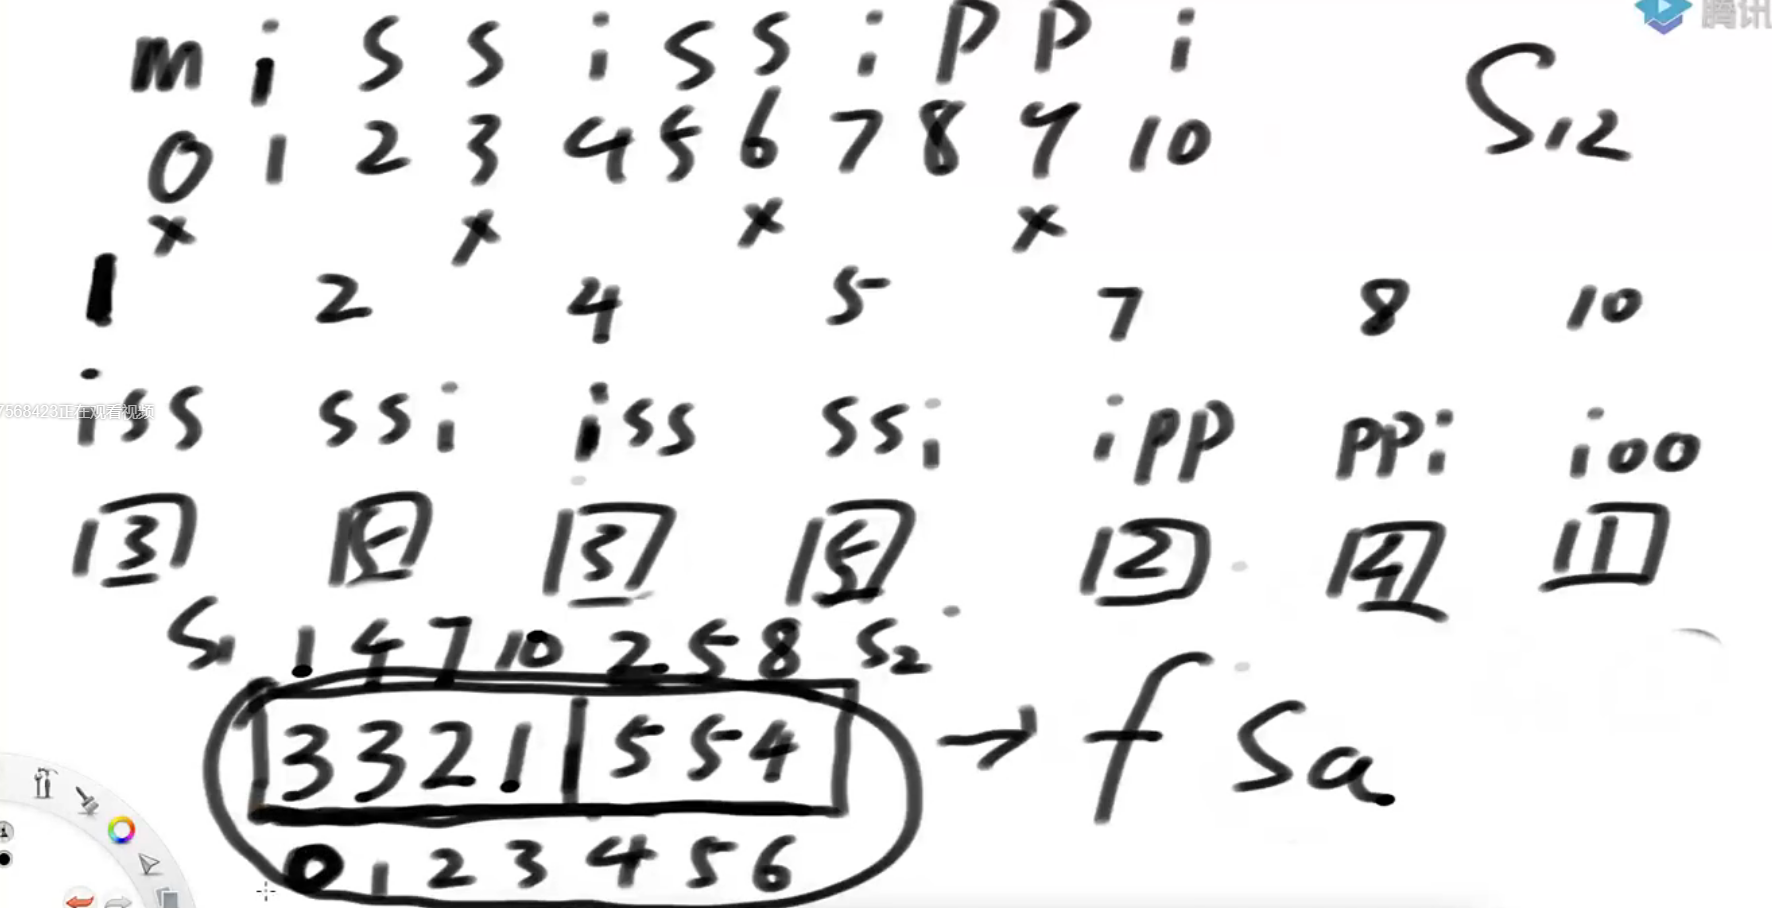 m i s s i s s i p p i
腾讯
0 1 2 3 4 5 6 7 8 9 10
S12
x x x x
1 2 4 5 7 8 10
iss ssi iss ssi ipp ppi i00
7568423正在观看视频
3 5 3 5 2 4 1
S1 1 4 7 10 2 5 8 S2
3 3 2 1 | 5 5 4 → f Sa
0 1 2 3 4 5 6